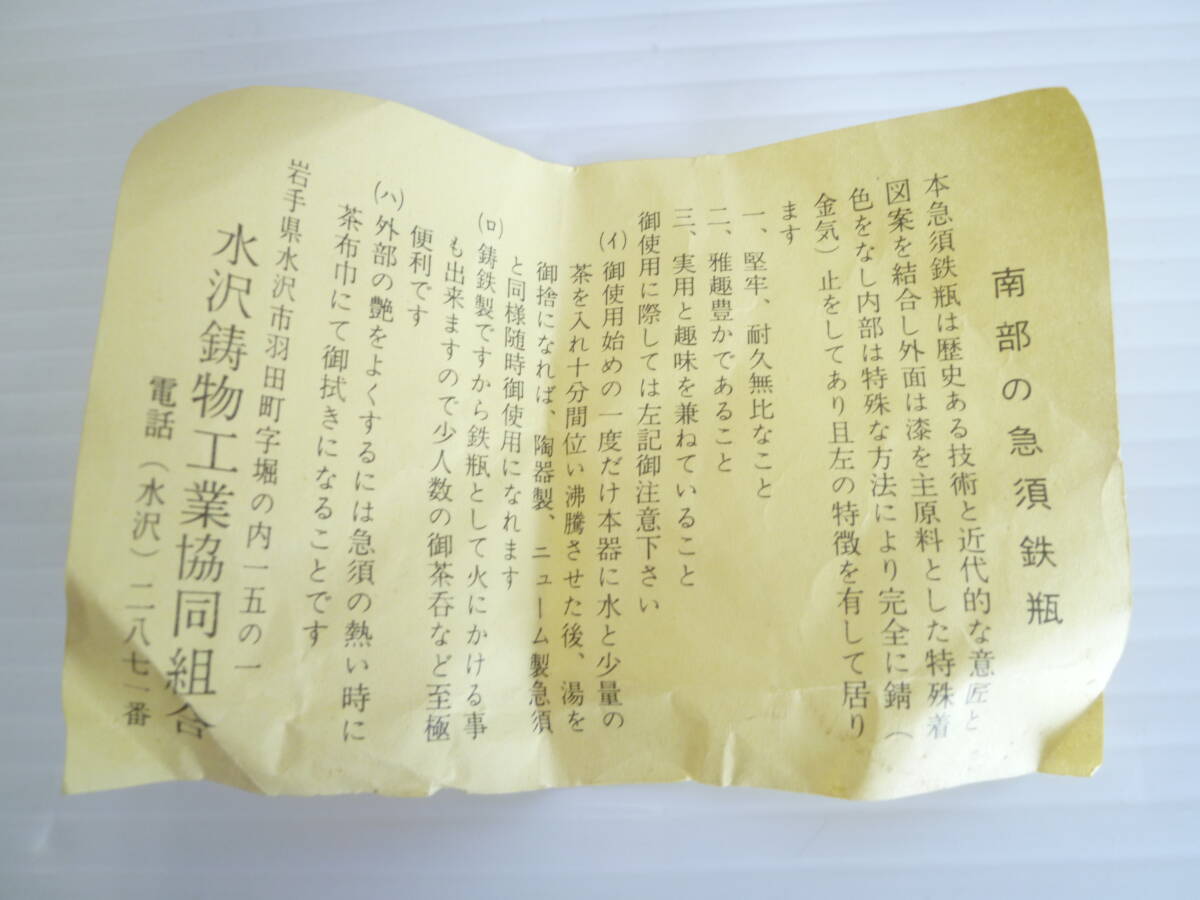 南部の急須鉄瓶
本急須鉄瓶は歴史ある技術と近代的な意匠と
図案を結合し外面は漆を主原料とした特殊着
色をなし内部は特殊な方法により完全に錆（
金気）止をしてあり且左の特徴を有して居り
ます
一、堅牢、耐久無比なこと
二、雅趣豊かであること
三、実用と趣味を兼ねていること
御使用に際しては左記御注意下さい
(イ)御使用始めの一度だけ本器に水と少量の
茶を入れ十分間位い沸騰させた後、湯を
御捨になれば、陶器製、ニューム製急須
と同様随時御使用になれます
(ロ)鋳鉄製ですから鉄瓶として火にかける事
も出来ますので少人数の御茶呑など至極
便利です
(ハ)外部の艶をよくするには急須の熱い時に
茶布巾にて御拭きになることです
岩手県水沢市羽田町字堀の内一五の一
水沢鋳物工業協同組合
電話（水沢）二八七一番